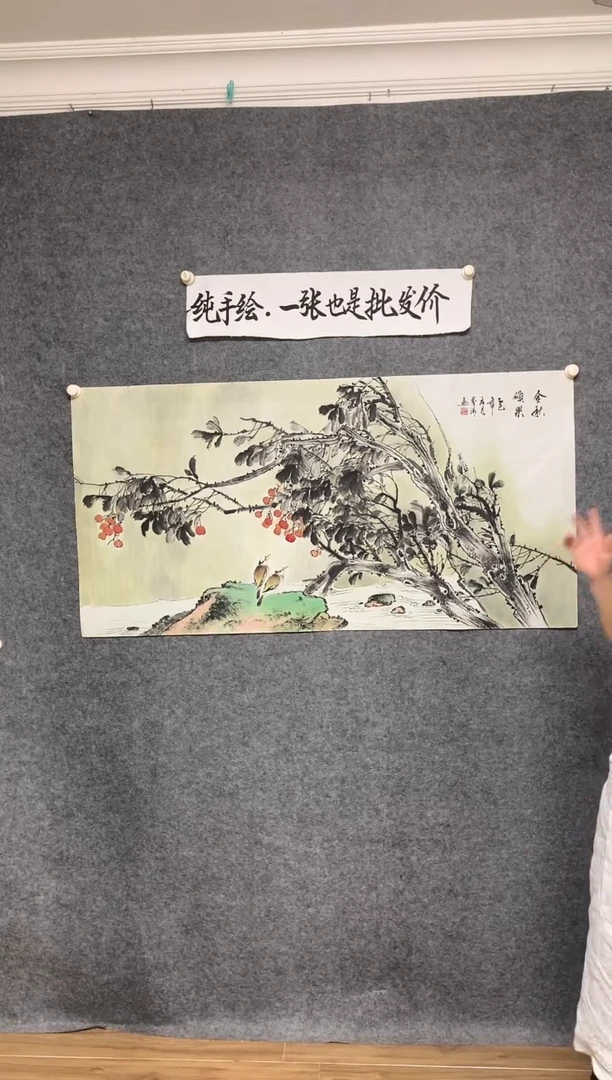 纯手绘.一张也是批发价
金秋
硕果